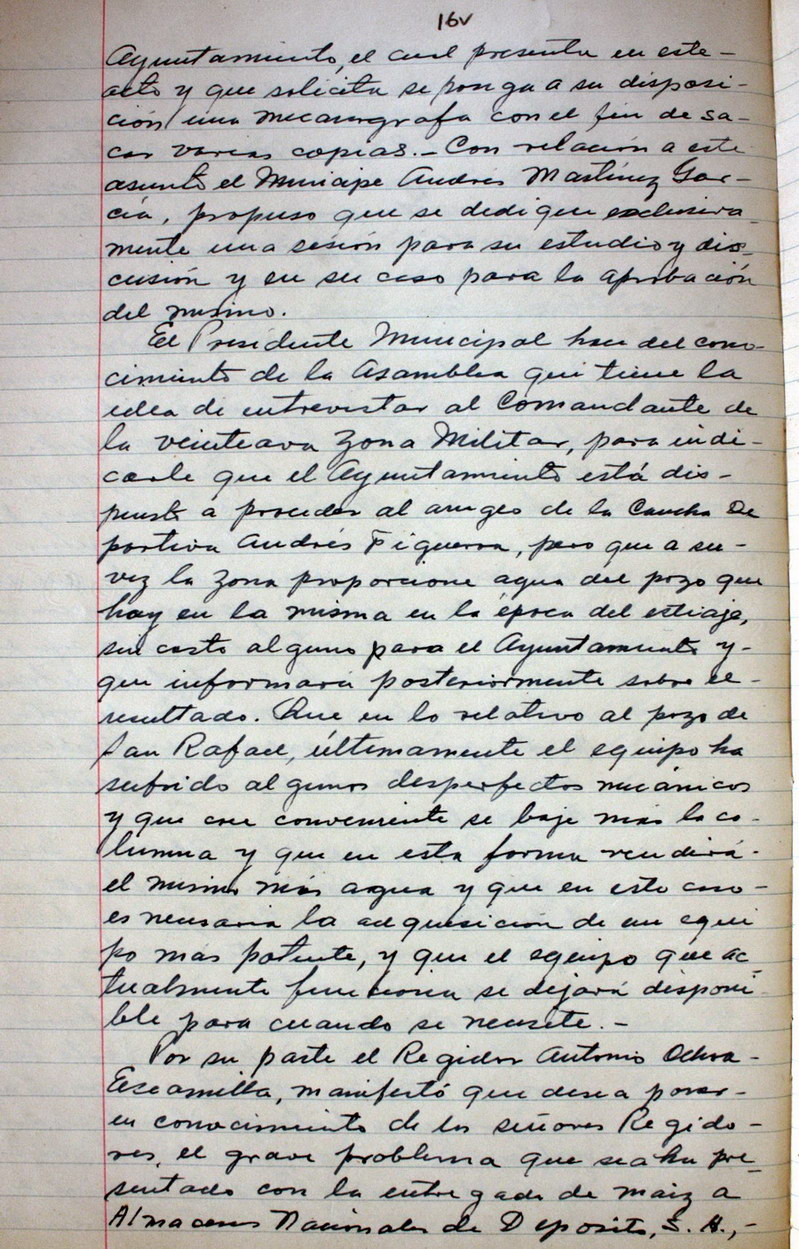 16v
Ayuntamiento, el cual presenta en este-
acto y que solicita se ponga a su disposi-
ción una mecanografa con el fin de sa-
car varias copias.- Con relación a este
asunto el Munícipe Andrés Martínez Gar-
cía, propuso que se dedique exclusiva-
mente una sesión para su estudio y dis-
cusión y en su caso para la aprobación
del mismo.
El Presidente Municipal hace del cono-
cimiento de la Asamblea que tiene la
idea de entrevistar al Comandante de
la veinteava Zona Militar, para indi-
carle que el Ayuntamiento está dis-
puesto a proceder al arreglo de la Cancha De
portiva Andrés Figueroa, pero que a su-
vez la Zona proporcione agua del pozo que
hay en la misma en la época del estiaje,
sin costo alguno para el Ayuntamiento y-
que informará posteriormente sobre el-
resultado. Que en lo relativo al pozo de
San Rafael, últimamente el equipo ha
sufrido algunos desperfectos mecánicos
y que cree conveniente se baje más la co-
lumna y que en esta forma rendirá-
el mismo más agua y que en este caso-
es necesaria la adquisición de un equi
po más potente, y que el equipo que ac-
tualmente funciona se dejará disponi-
ble para cuando se necesite.-
Por su parte el Regidor Antonio Ochoa-
Escamilla, manifestó que desea poner-
en conocimiento de los señores Regido-
res, el grave problema que se ha pre-
sentado con la entrega de maiz a
Almacenes Nacionales de Deposito, S. A.,-